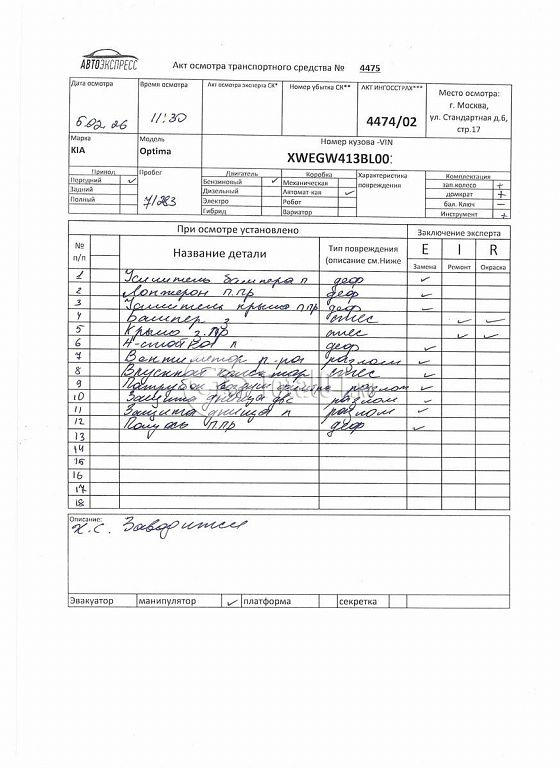 АВТОЭКСПРЕСС
Акт осмотра транспортного средства № 4475
Дата осмотра Время осмотра Акт осмотра эксперта СК* Номер убытка СК** АКТ ИНГОССТРАХ*** Место осмотра:
г. Москва,
ул. Стандартная д.6,
стр.17
5.02.26 11:30 4474/02
Марка Модель Номер кузова -VIN
KIA Optima XWEGW413BL00
Привод Пробег Двигатель Коробка Характеристика повреждения Комплектация
Передний ✓ Бензиновый ✓ Механическая зап.колесо +
Задний 71283 Дизельный Автомат-кая ✓ домкрат +
Полный Электро Робот бал. Ключ –
Гибрид Вариатор Инструмент +
При осмотре установлено Заключение эксперта
№ п/п Название детали Тип повреждения (описание см.Ниже E I R
Замена Ремонт Окраска
1 Усилитель бампера п деф ✓
2 Лонжерон п.пр деф ✓
3 Усилитель крыла п.пр деф ✓
4 Бампер з ✓ ✓
5 Крыло з.пр ✓ ✓
6 п деф ✓
7 разлом ✓
8 Впускной ✓
9 Патрубок разлом ✓
10 Защита днища двс разлом ✓
11 Защита днища п разлом ✓
12 Полуось п.пр деф ✓
13
14
15
16
17
18
Описание:
х.с. Заводится
Эвакуатор манипулятор ✓ платформа секретка